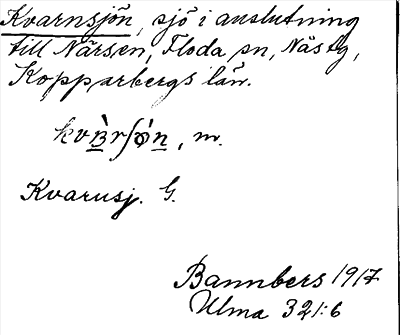 Kvarnsjön, sjö i anslutning
till Närsen, Floda sn, Nås tg,
Kopparbergs län.
, m.
Kvarnsj. G.
Bannbers 1917
Ulma 321:6